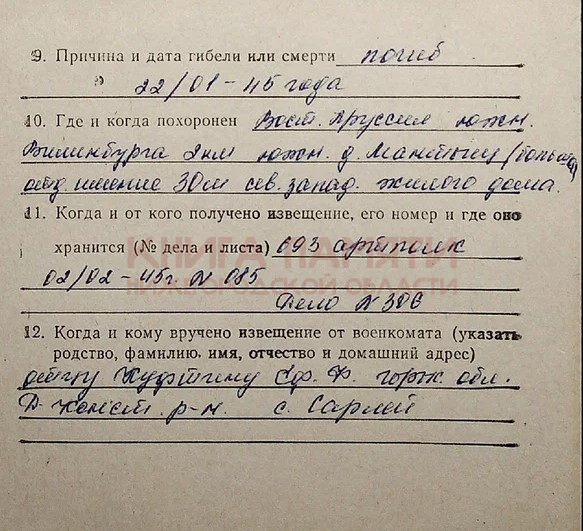 9. Причина и дата гибели или смерти погиб
22/01-45 года
10. Где и когда похоронен Вост. Пруссия южн.
Вилинбурга 2км южн. д.
отд. имение 30м сев. запад. жилого дома.
11. Когда и от кого получено извещение, его номер и где оно
хранится (№ дела и листа) 693 артполк
КНИГА ПАМЯТИ
02/02-45г. N 085
НИЖЕГОРОДСКОЙ ОБЛАСТИ
Дело N 306
12. Когда и кому вручено извещение от военкомата (указать
родство, фамилию, имя, отчество и домашний адрес)
отцу Куфтину Ф. горьк. обл.
Д-Конст. р-н. с. Сарлей